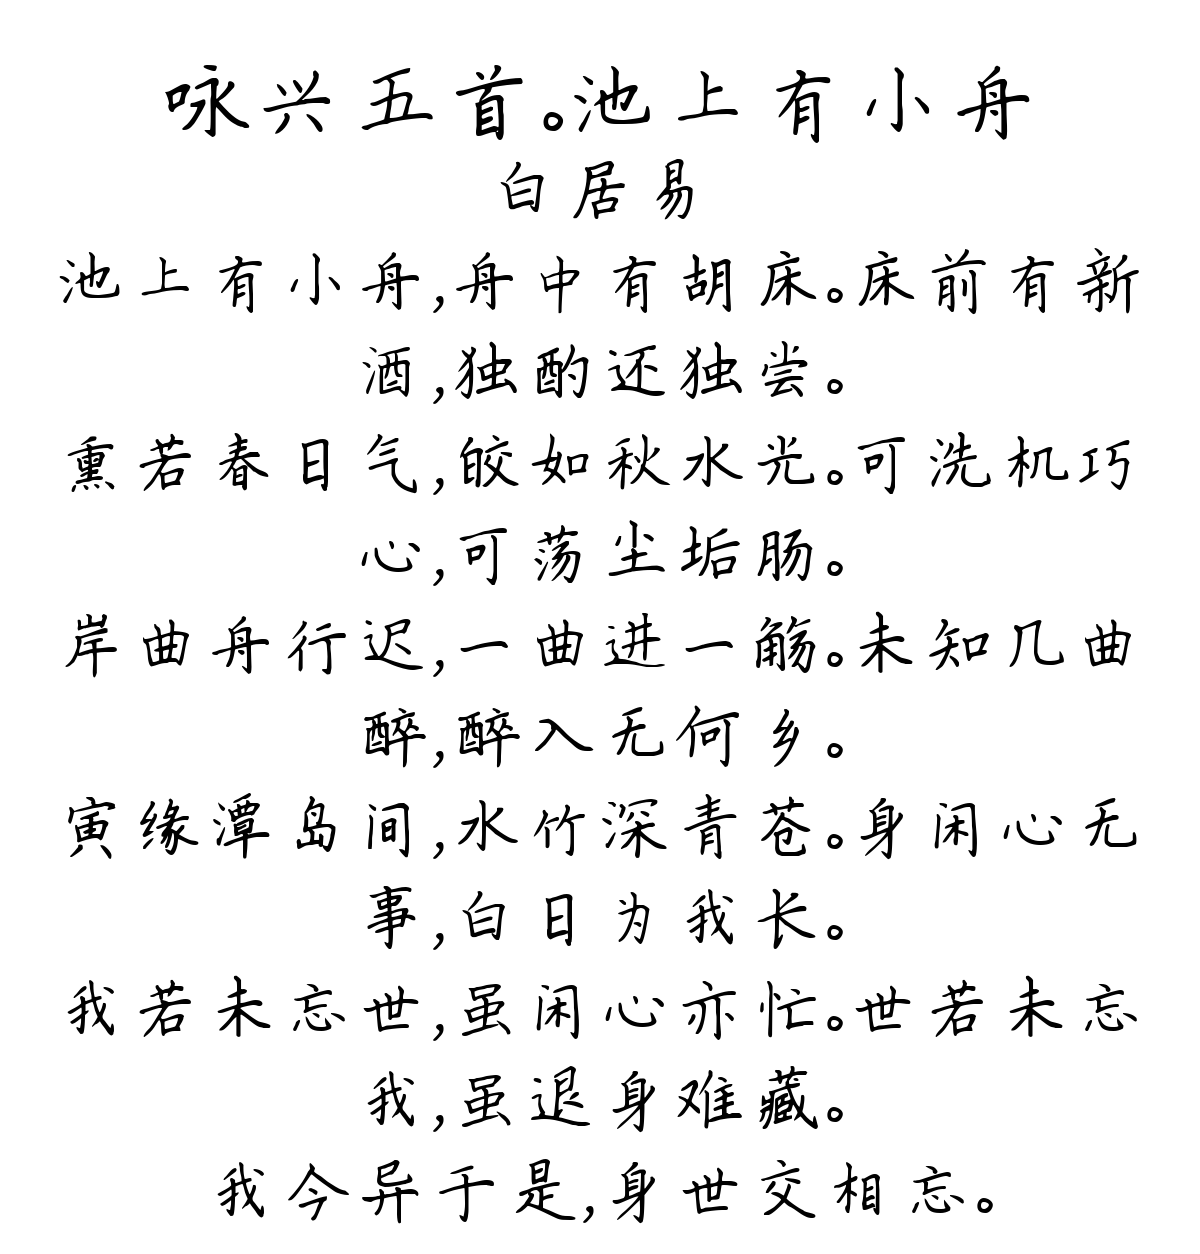 咏兴五首。池上有小舟
白居易
池上有小舟,舟中有胡床。床前有新
酒,独酌还独尝。
熏若春日气,皎如秋水光。可洗机巧
心,可荡尘垢肠。
岸曲舟行迟,一曲进一觞。未知几曲
醉,醉入无何乡。
寅缘潭岛间,水竹深青苍。身闲心无
事,白日为我长。
我若未忘世,虽闲心亦忙。世若未忘
我,虽退身难藏。
我今异于是,身世交相忘。